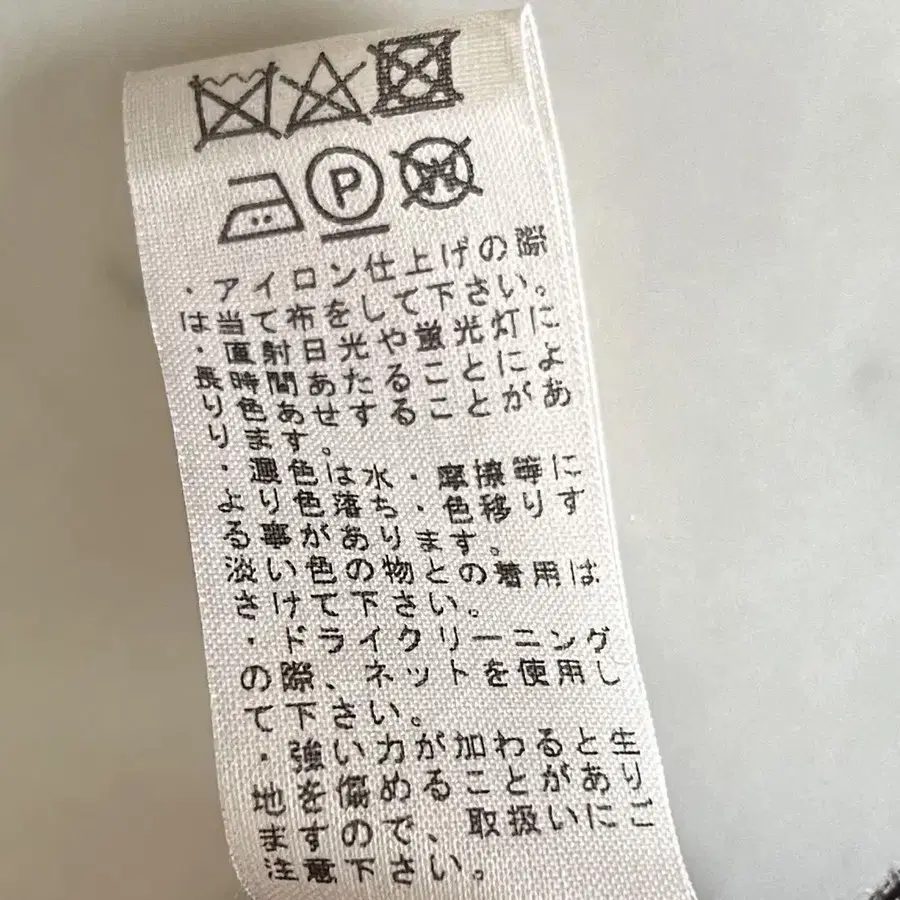 P
W
・アイロン仕上げの際
は当て布をして下さい。
・直射日光や蛍光灯に
長時間あたることによ
り色あせすることがあ
ります。
・濃色は水・摩擦等に
より色落ち・色移りす
る事があります。
淡い色の物との着用は
さけて下さい。
・ドライクリーニング
の際、ネットを使用し
て下さい。
・強い力が加わると生
地を傷めることがあり
ますので、取扱いにご
注意下さい。